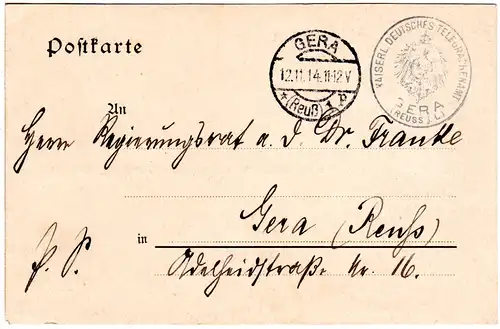 Postkarte
GERA
12.11.14.11-12V
*(Reuß)1 b
KAISERL. DEUTSCHES TELEGRAPHENAMT
GERA
(REUSS J.L.)
An
Herrn Regierungsrat a. D. Dr. Franke
Gera (Reuß)
P. S. in Adelheidstraße Nr. 16.